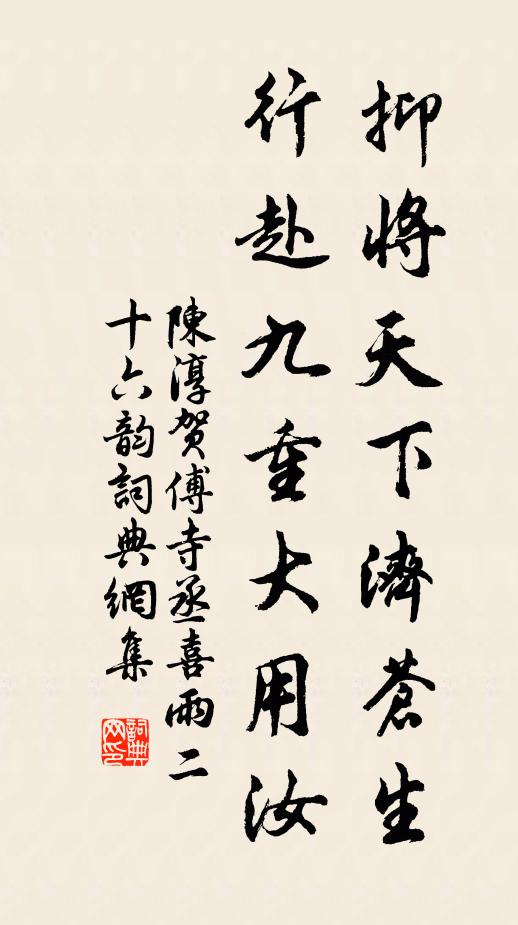 抑將天下濟蒼生
行赴九重大用汝
陳淳賀傅寺丞喜雨二
十六韵詞典網集
詞典網印